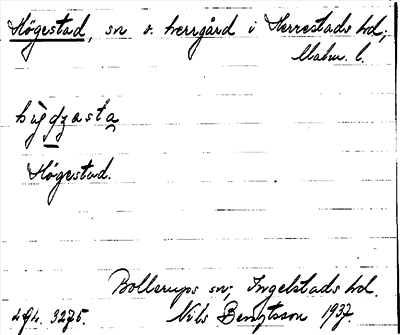 Högestad, sn o. herrgård i Herrestads hd;
Malm. l.
Högestad.
Bollerups sn; Ingelstads hd.
Nils Bengtsson 1937